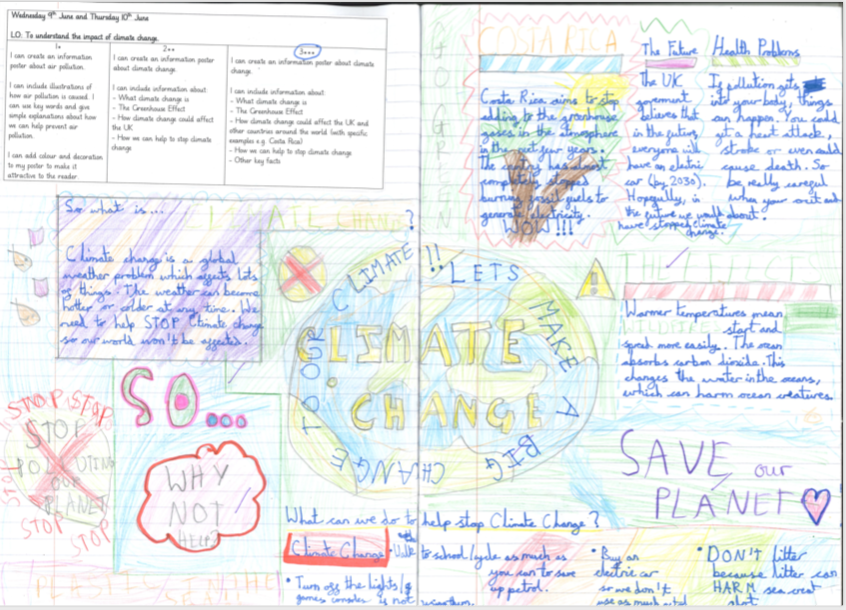 Wednesday 9th June and Thursday 10th June
L.O. To understand the impact of climate change.
1+
I can create an information
poster about air pollution.
I can include illustrations of
how air pollution is caused. I
can use key words and give
simple explanations about how
we can help prevent air
pollution.
I can add colour and decoration
to my poster to make it
attractive to the reader.
2++
I can create an information poster
about climate change.
I can include information about:
- What climate change is
- The Greenhouse Effect
- How climate change could affect
the UK
- How we can help to stop climate
change
3+++
I can create an information poster about climate
change.
I can include information about:
- What climate change is
- The Greenhouse Effect
- How climate change could affect the UK and
other countries around the world (with specific
examples e.g. Costa Rica)
- How we can help to stop climate change
- Other key facts
GO GREEN
COSTA RICA
Costa Rica aims to stop
adding to the greenhouse
gases in the atmosphere
in the next few years.
The country has almost
completely stopped
burning fossil fuels to
generate electricity.
WOW!!!
The Future
The UK
government
believes that
in the future,
everyone will
have an electric
car (by 2030).
Hopefully, in
the future we would
have stopped climate
change.
Health Problems
If pollution gets
into your body, things
can happen. You could
get a heart attack,
stroke or even could
cause death. So
be really careful
when your out and
about.
So what is...
CLIMATE CHANGE?
Climate change is a global
weather problem which affects lots
of things. The weather can become
hotter or colder at any time. We
need to help STOP Climate change
so our world won't be affected.
LETS MAKE A BIG CHANGE TO OUR CLIMATE!!
CLIMATE
CHANGE
THE
Warmer temperatures mean
WILDFIRES start and
spread more easily. The ocean
absorbs carbon dioxide. This
changes the water in the oceans,
which can harm ocean creatures.
SO...
STOP STOP
STOP
STOP
POLLUTING
OUR
PLANET
STOP
STOP
WHY
NOT
HELP?
SAVE our
PLANET
What can we do to help stop Climate Change?
Climate Change
• Walk to school/cycle as much as
you can to save
up petrol.
• Turn off the lights/
games consoles is not
• Buy an
electric car
so we don't
use as much
• DON'T litter
because litter can
HARM sea
PLASTICS IN THE
SEA